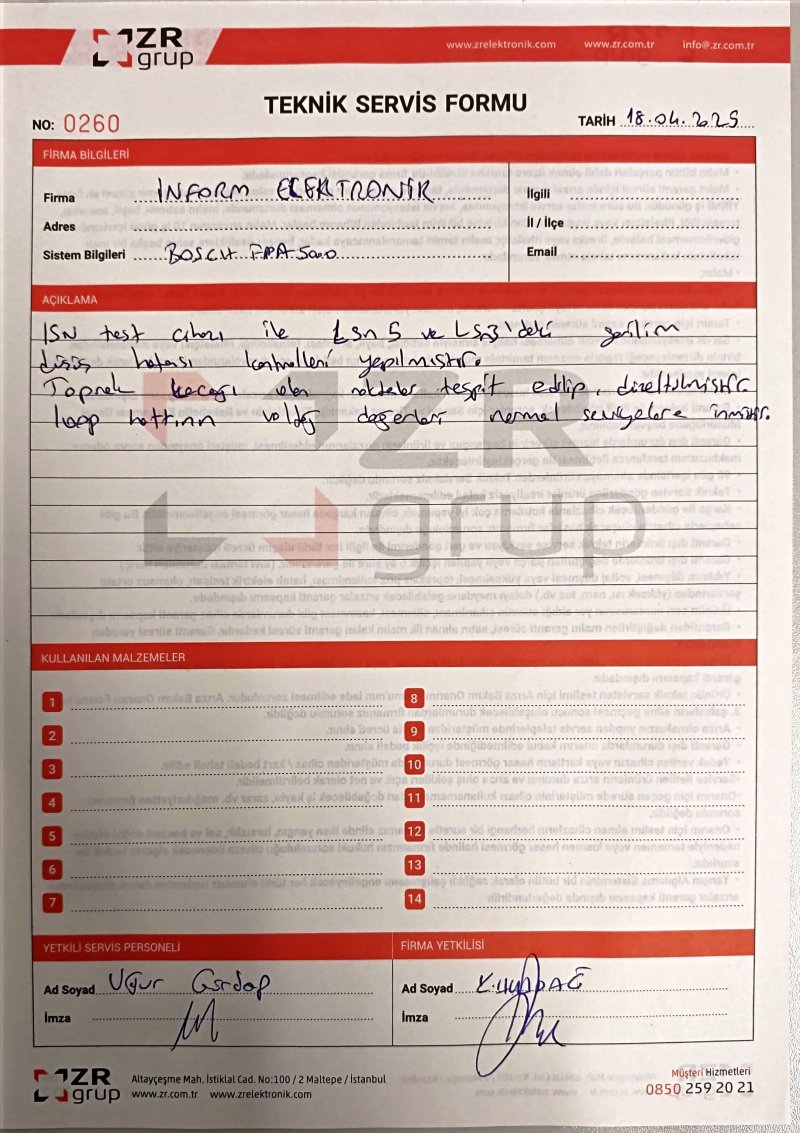 ZR grup
www.zrelektronik.com www.zr.com.tr info@.zr.com.tr
TEKNİK SERVİS FORMU
NO: 0260
TARİH 18.04.2025
FİRMA BİLGİLERİ
Firma İNFORM ELEKTRONİK
Adres
Sistem Bilgileri BOSCH FPA 5000
İlgili
İl / İlçe
Email
AÇIKLAMA
LSN test cihazı ile LSN 5 ve LSN3'deki gerilim
düşüş hatası kontrolleri yapılmıştır.
Toprak kaçağı olan noktalar tespit edilip, düzeltilmiştir.
Loop hattının voltaj değerleri normal seviyelere inmiştir.
ZR grup
KULLANILAN MALZEMELER
1
2
3
4
5
6
7
8
9
10
11
12
13
14
YETKİLİ SERVİS PERSONELİ
Ad Soyad Uğur
İmza
FİRMA YETKİLİSİ
Ad Soyad
İmza
ZR grup
Altayçeşme Mah. İstiklal Cad. No:100 / 2 Maltepe / İstanbul
www.zr.com.tr www.zrelektronik.com
Müşteri Hizmetleri
0850 259 20 21